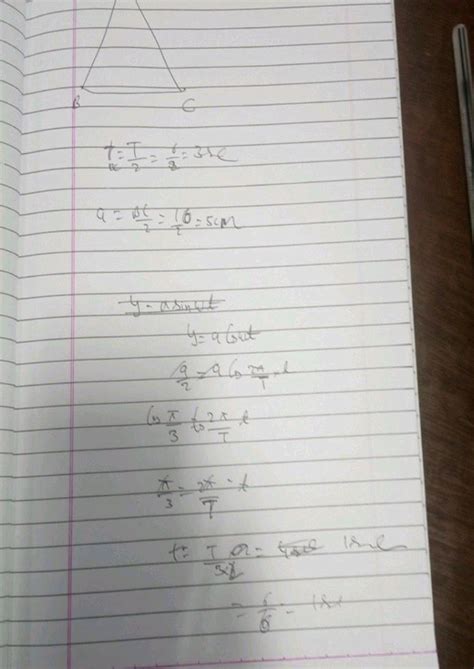 B C
t = T/2 = 6/2 = 3 sec
a = BC/2 = 10/2 = 5cm
y = a sin ωt
y = a Cos ωt
a/2 = a Cos 2π/T . t
Cos π/3 = Cos 2π/T . t
π/3 = 2π/T . t
t = T
= 6/6 = 1 sec